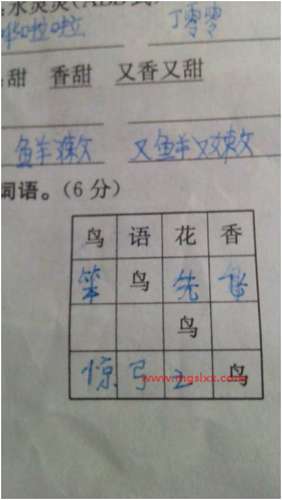 水灵灵(ABB式
哗啦啦 丁零零
甜 香甜 又香又甜
鲜嫩 又鲜又嫩
词语。(6分)
鸟 语 花 香
笨 鸟 先 飞
鸟
惊 弓 之 鸟